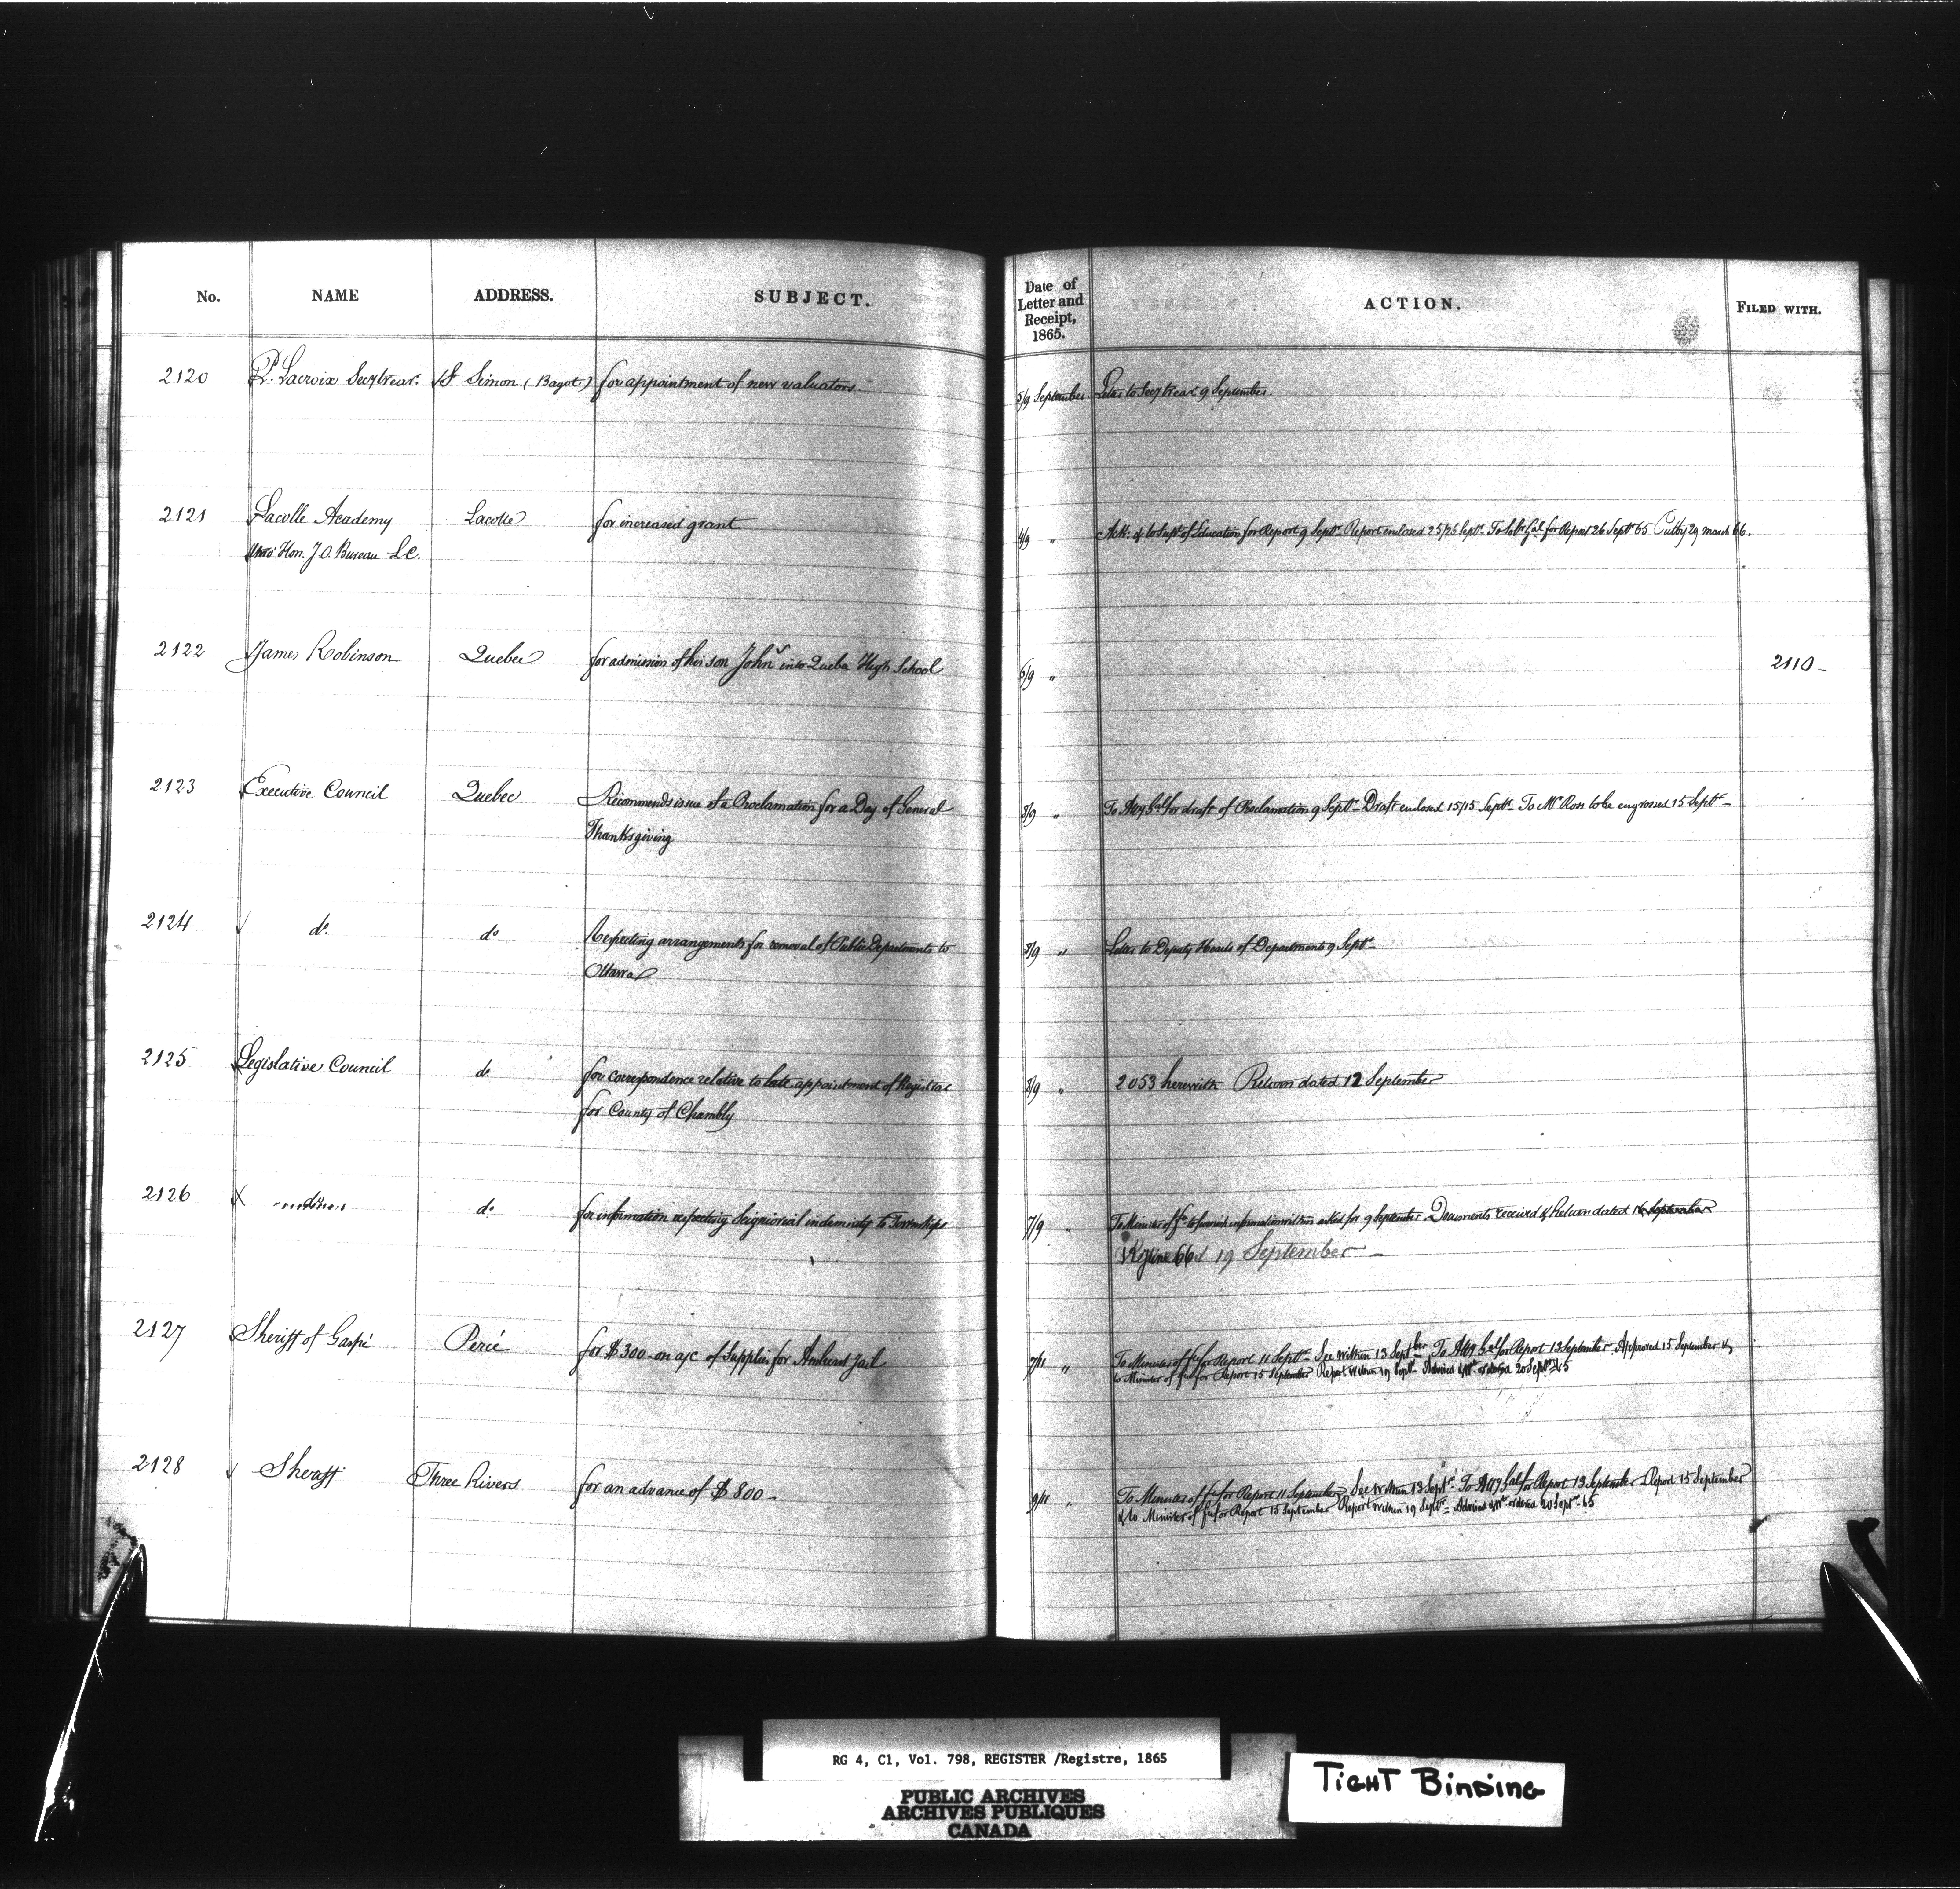 No. NAME ADDRESS. SUBJECT. Date of Letter and Receipt, 1865. ACTION. FILED WITH.
2120 P. Lacroix Secy treas. St Simon (Bagot.) for appointment of new valuators. 5/9 September Letter to Secy treas. 9 September.
2121 Lacolle Academy Lacolle for increased grant 4/9 " Ack: & to Supt. of Education for Report 9 Septr. Report enclosed 25/26 Septr. To for Report 26 Septr 65 29 march 66.
Hon. J.O. Bureau L.C.
2122 James Robinson Quebec for admission of his son John into Quebec High School 6/9 " 2110-
2123 Executive Council Quebec Recommends issue of a Proclamation for a Day of General 8/9 " To Atty Gal for draft of Proclamation 9 Septr- Draft enclosed 15/15 Septr- To Mr Ross to be engrossed 15 Septr-
Thanksgiving
2124 do. do Respecting arrangements for removal of Public Departments to 8/9 " Letter to Deputy Heads of Departments 9 Septr-
Ottawa
2125 Legislative Council do. for correspondence relative to late appointment of Registrar 8/9 " 2053 herewith Return dated 12 September
for County of Chambly
2126 do. for information respecting Seigniorial indemnity to Townships 7/9 " To Minister of to furnish information within asked for 9 September Documents received & Return dated September
19 September-
2127 Sheriff of Gaspé Percé for $300- on a/c of Supplies for Amherst Jail 7/11 " To Minister of for Report 11 Septr- See within 13 Septber To Atty Gal for Report 13 September. Approved 15 September &
to Minister of for Report 15 September Report within 19 Septr- 20 Septr 65
2128 Sheriff Three Rivers for an advance of $800- 9/11 " To Minister of for Report 11 September, See within 13 Septr. To Atty Gal for Report 13 September Report 15 September
& to Minister of for Report 15 September Report within 19 Septr- 20 Septr- 65
RG 4, C1, Vol. 798, REGISTER /Registre, 1865
PUBLIC ARCHIVES
ARCHIVES PUBLIQUES
CANADA
TIGHT BINDING